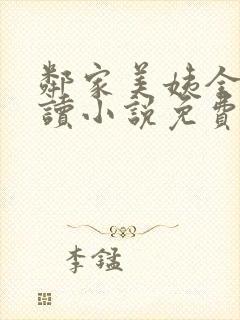 鄰家美姨全
讀小說免費
李錳